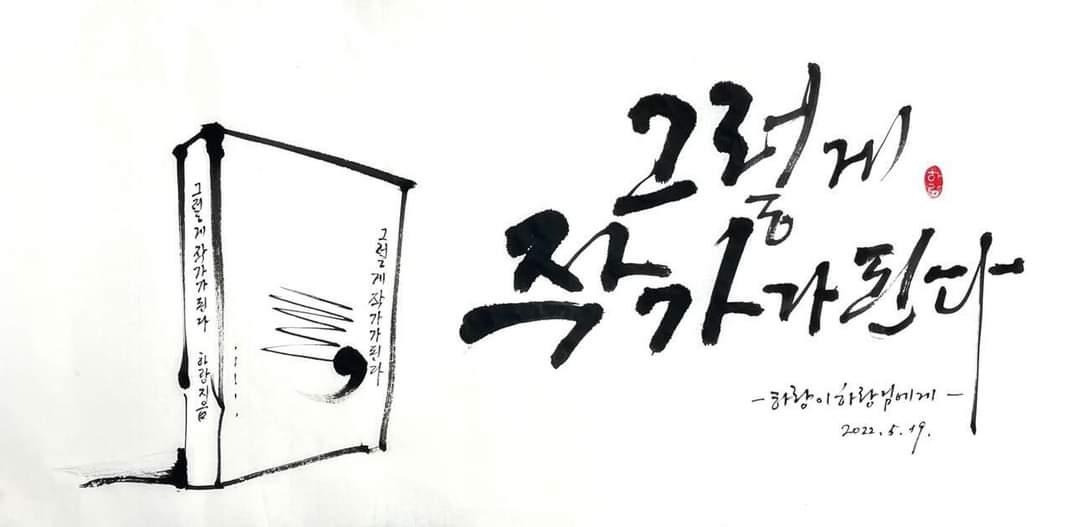 그렇게 작가가 된다 하랑 지음
그렇게 작가가 된다
그렇게
하랑
작가가 된다
-하랑이 하랑님에게-
2022.5.19.